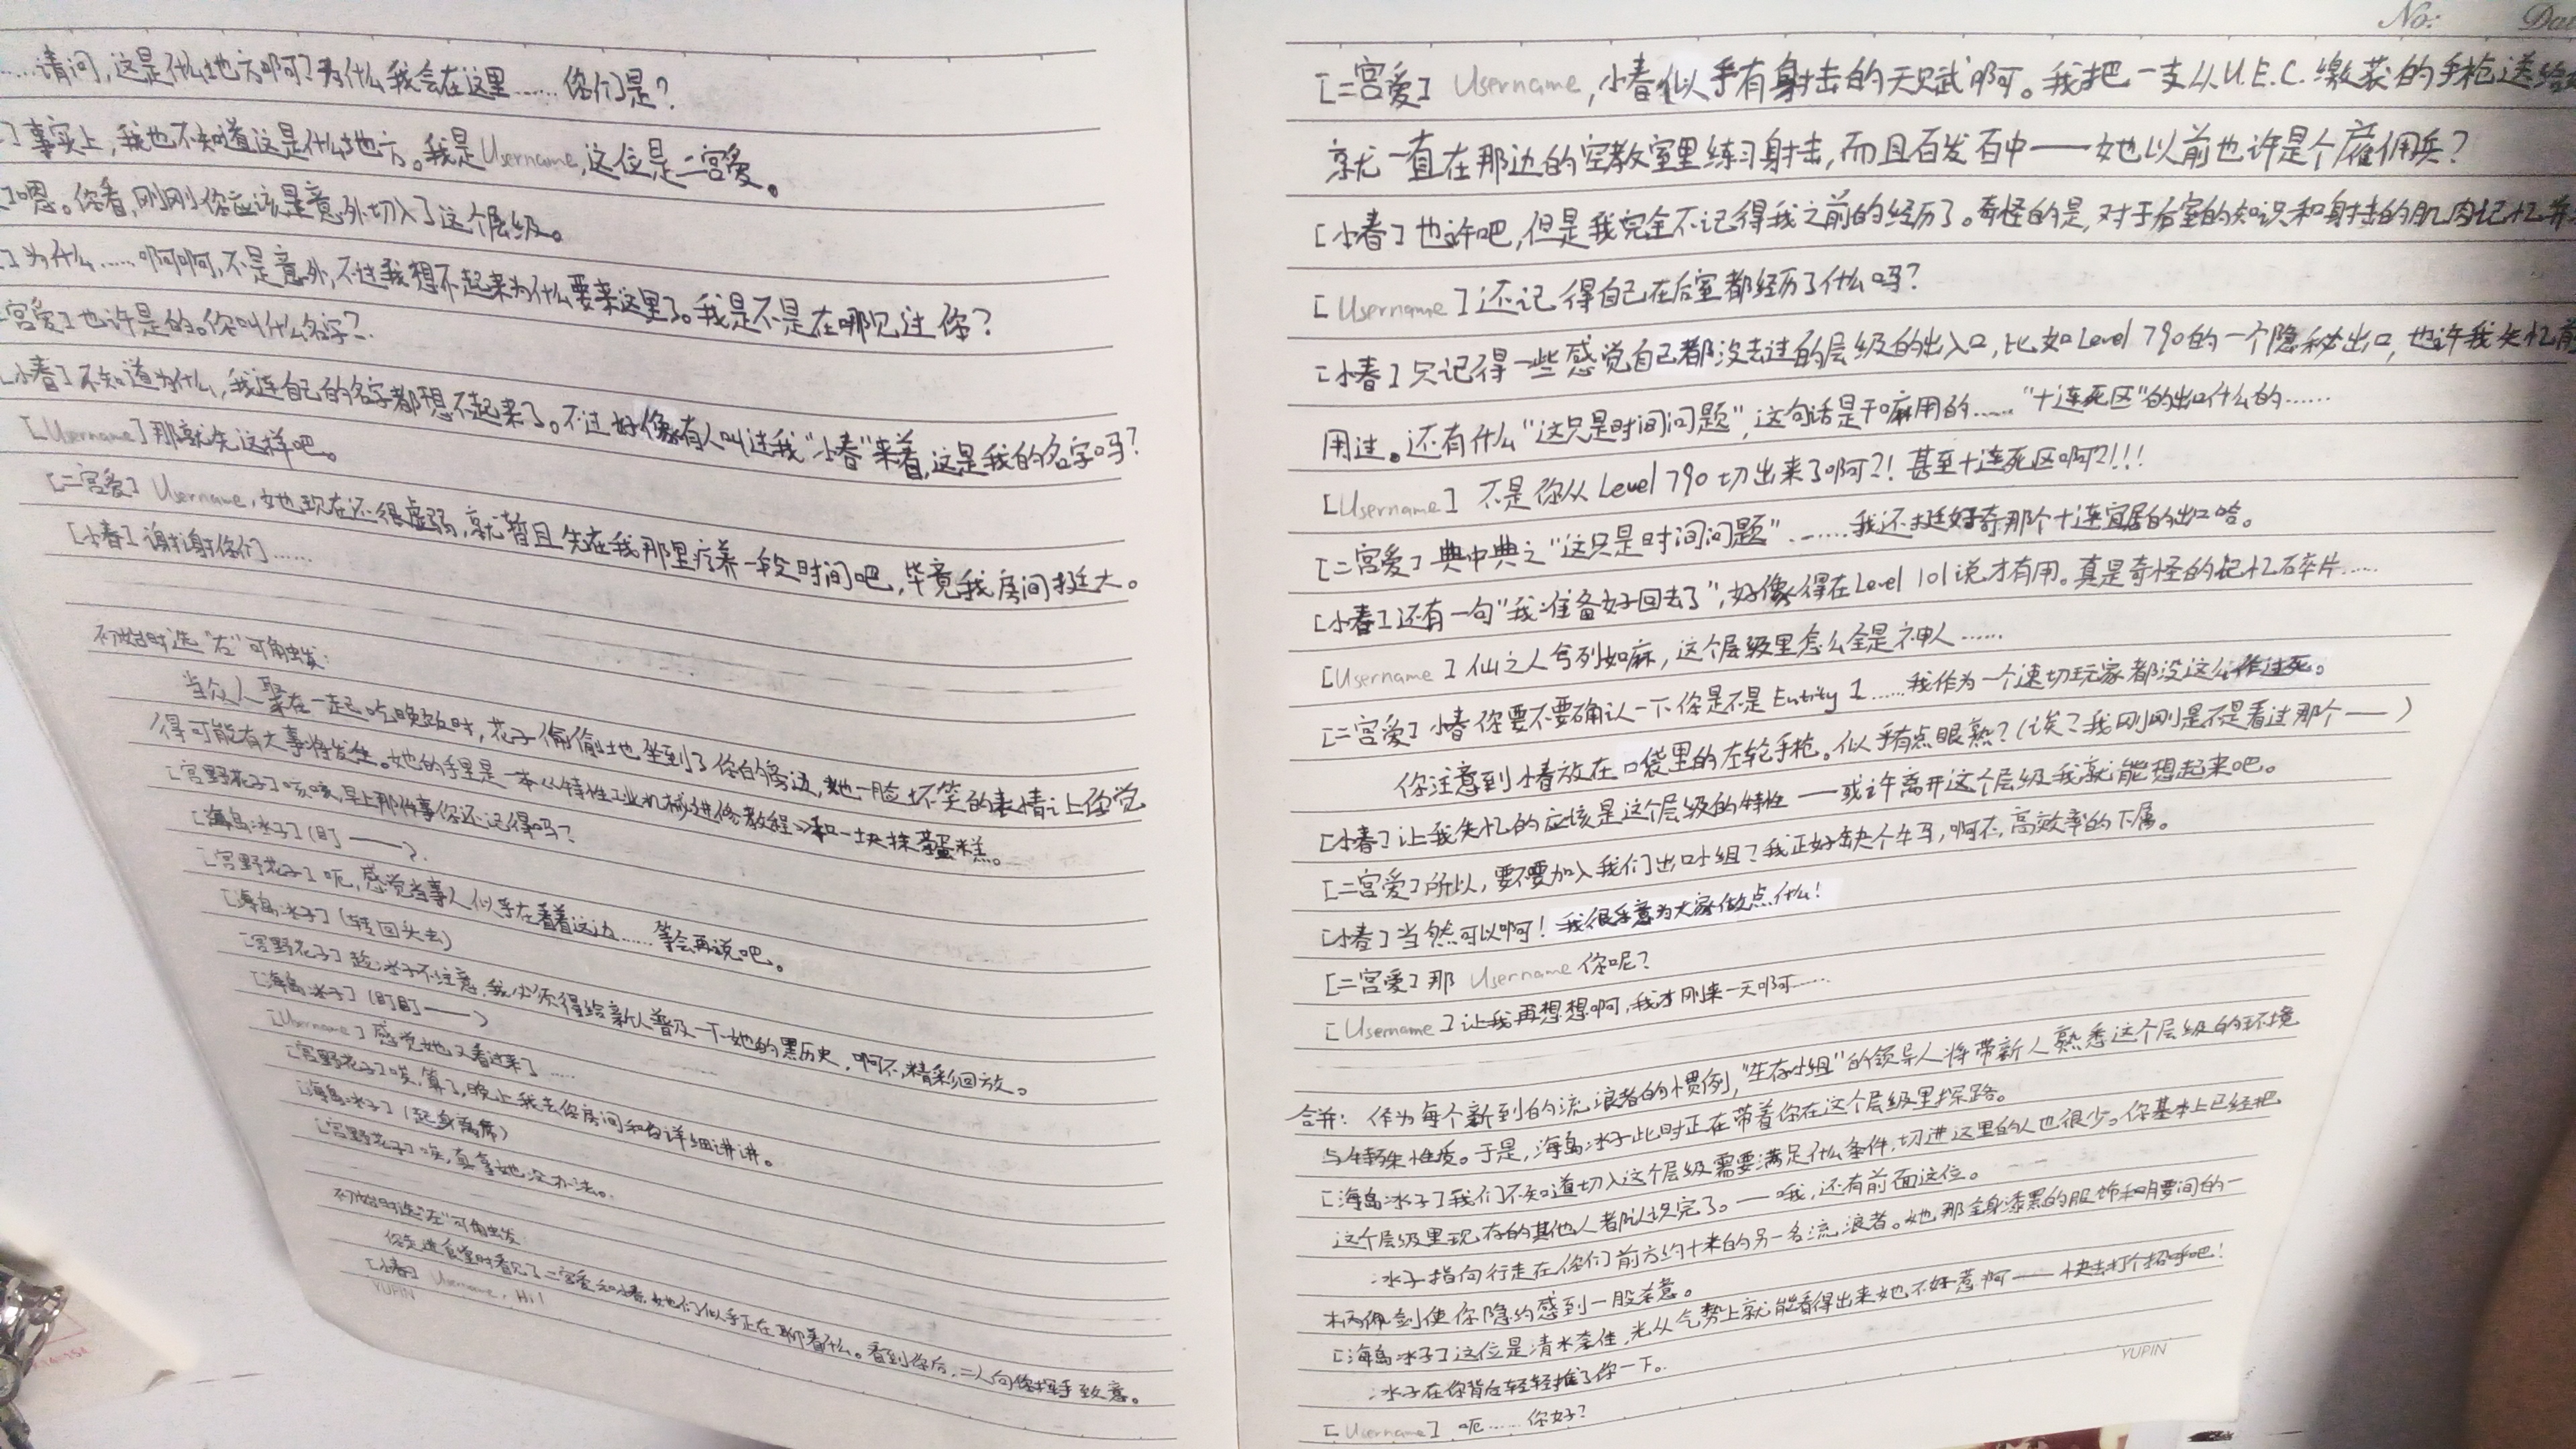 ……请问,这是什么地方啊?为什么我会在这里……你们是?
]事实上,我也不知道这是什么地方。我是Username,这位是二宫爱。
]嗯。你看,刚刚你应该是意外切入了这个层级。
]为什么……啊啊,不是意外,不过我想不起来为什么要来这里了。我是不是在哪见过你?
宫爱]也许是的。你叫什么名字?
[小春]不知道为什么,我连自己的名字都想不起来了。不过好像有人叫过我“小春”来着,这是我的名字吗?
[Username]那就先这样吧。
[二宫爱] Username,她现在还很虚弱,就暂且先在我那里疗养一段时间吧,毕竟我房间挺大。
[小春]谢谢你们……
初始时选“右”可触发:
当众人聚在一起吃晚饭时,花子偷偷地坐到了你的旁边,她一脸坏笑的表情让你觉
得可能有大事将发生。她的手里是一本《特性工业机械进修教程》和一块抹茶蛋糕。
[宫野花子]咳咳,早上那件事你还记得吗?
[海岛冰子](盯——)
[宫野花子]呃,感觉当事人似乎在看着这边……等会再说吧。
[海岛冰子](转回头去)
[宫野花子]趁冰子不注意,我必须得给新人普及一下她的黑历史,啊不,精彩回放。
[海岛冰子](盯盯——)
[Username]感觉她又看过来了……
[宫野花子]唉,算了,晚上我去你房间和你详细讲讲。
[海岛冰子](起身离席)
[宫野花子]唉,真拿她没办法。
初始时选“左”可触发
你走进食堂时看见了二宫爱和小春,她们似乎正在聊着什么。看到你后,二人向你挥手致意。
[小春] Username, Hi!
YUPIN
No: Da
[二宫爱] Username,小春似乎有射击的天赋啊。我把一支从U.E.C.缴获的手枪送给
就一直在那边的空教室里练习射击,而且百发百中——她以前也许是个雇佣兵?
[小春]也许吧,但是我完全不记得我之前的经历了。奇怪的是,对于后室的知识和射击的肌肉记忆
[Username]还记得自己在后室都经历了什么吗?
[小春]只记得一些感觉自己都没去过的层级的出入口,比如Level 790的一个隐秘出口,也许我失忆前
用过。还有什么“这只是时间问题”,这句话是干嘛用的……“十连死区”的出口什么的……
[Username] 不是你从Level 790切出来了啊?!甚至十连死区啊?!!!
[二宫爱]典中典之“这只是时间问题”……我还挺好奇那个十连宜居的出口哈。
[小春]还有一句“我准备好回去了”,好像得在Level 101说才有用。真是奇怪的记忆碎片……
[Username]仙之人兮列如麻,这个层级里怎么全是神人……
[二宫爱]小春你要不要确认一下你是不是Entity 1……我作为一个速切玩家都没这么作过死。
你注意到小春放在口袋里的左轮手枪。似乎有点眼熟?(诶?我刚刚是不是看过那个——)
[小春]让我失忆的应该是这个层级的特性——或许离开这个层级我就能想起来吧。
[二宫爱]所以,要不要加入我们出口小组?我正好缺个牛马,啊不,高效率的下属。
[小春]当然可以啊!我很乐意为大家做点什么!
[二宫爱]那 Username 你呢?
[Username]让我再想想啊,我才刚来一天啊……
合并: 作为每个新到的流浪者的惯例,“生存小组”的领导人将带新人熟悉这个层级的环境
与特殊性质。于是,海岛冰子此时正在带着你在这个层级里探路。
[海岛冰子]我们不知道切入这个层级需要满足什么条件,切进这里的人也很少。你基本上已经把
这个层级里现存的其他人都认识完了。——哦,还有前面这位。
冰子指向行走在你们前方约十米的另一名流浪者。她那全身漆黑的服饰和腰间的一
柄佩剑使你隐约感到一股杀意。
[海岛冰子]这位是清水奈佳,光从气势上就能看得出来她不好惹啊——快去打个招呼吧!
冰子在你背后轻轻推了你一下。
[Username] 呃……你好?
YUPIN